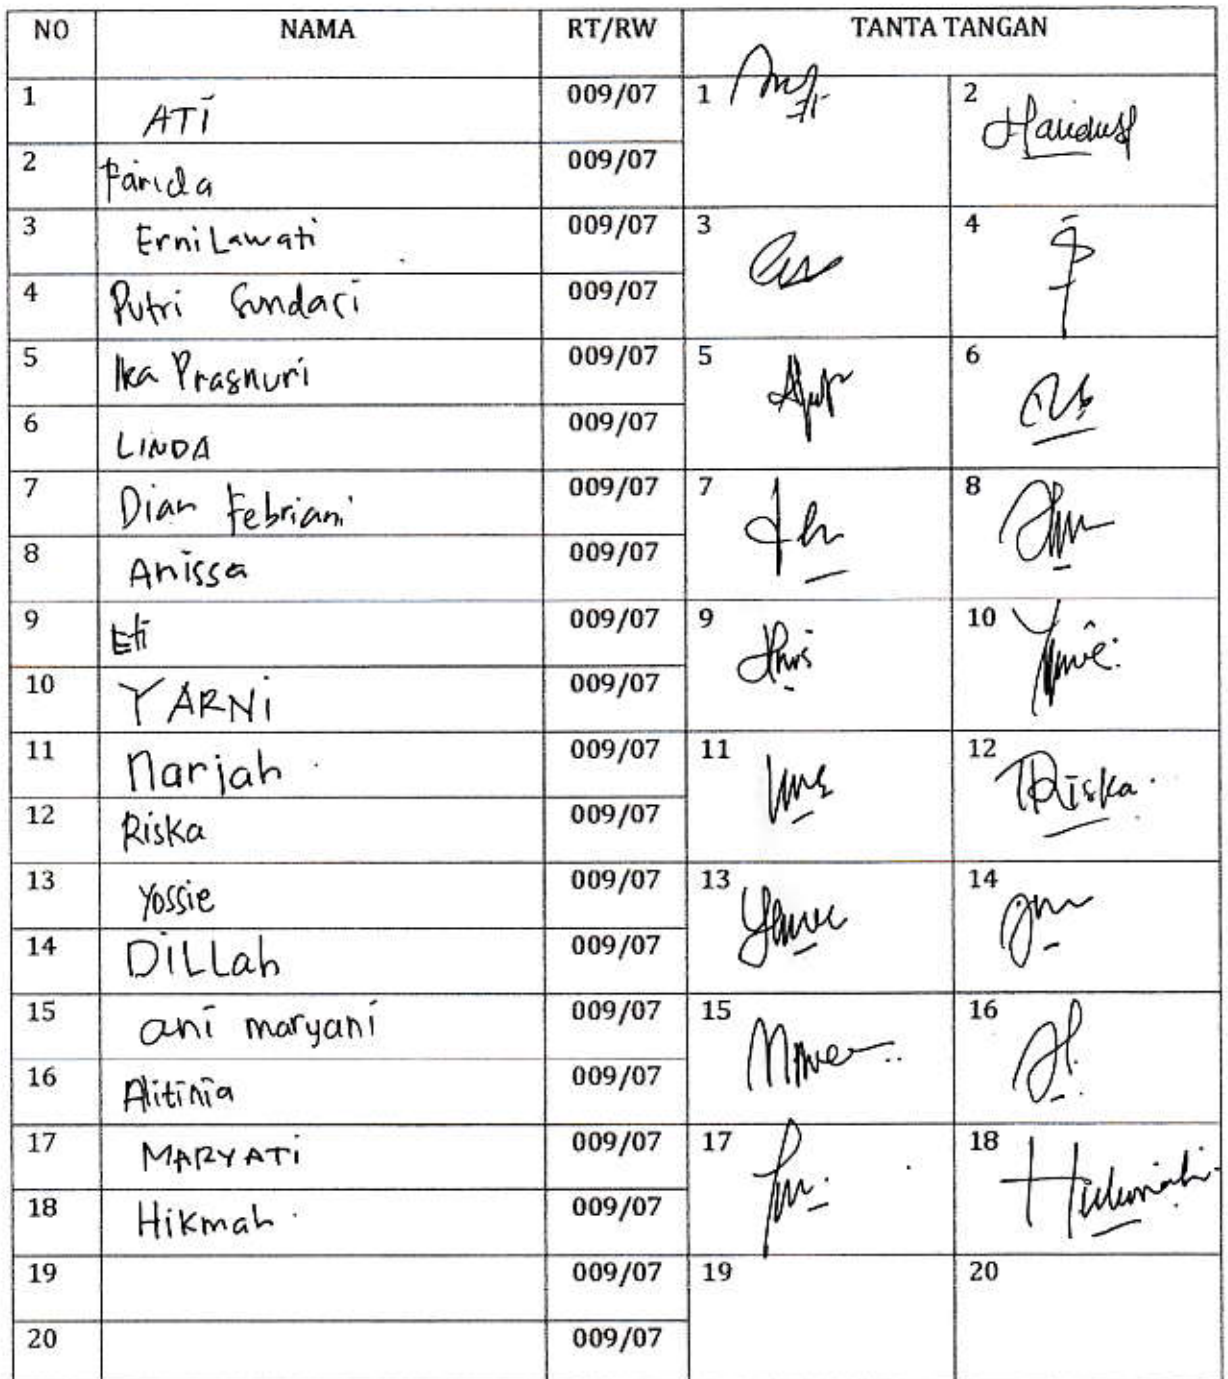 NO NAMA RT/RW TANTA TANGAN
1 ATi 009/07 1 2
2 Farida 009/07
3 Ernilawati 009/07 3 4
4 Putri Sundari 009/07
5 Ika Prasnuri 009/07 5 6
6 LINDA 009/07
7 Dian Febriani 009/07 7 8
8 Anissa 009/07
9 Eti 009/07 9 10
10 YARNi 009/07
11 Narjah 009/07 11 12 Riska
12 Riska 009/07
13 Yossie 009/07 13 14
14 DiLLah 009/07
15 ani maryani 009/07 15 16
16 Alitinia 009/07
17 MARYATi 009/07 17 18
18 Hikmah 009/07
19 009/07 19 20
20 009/07